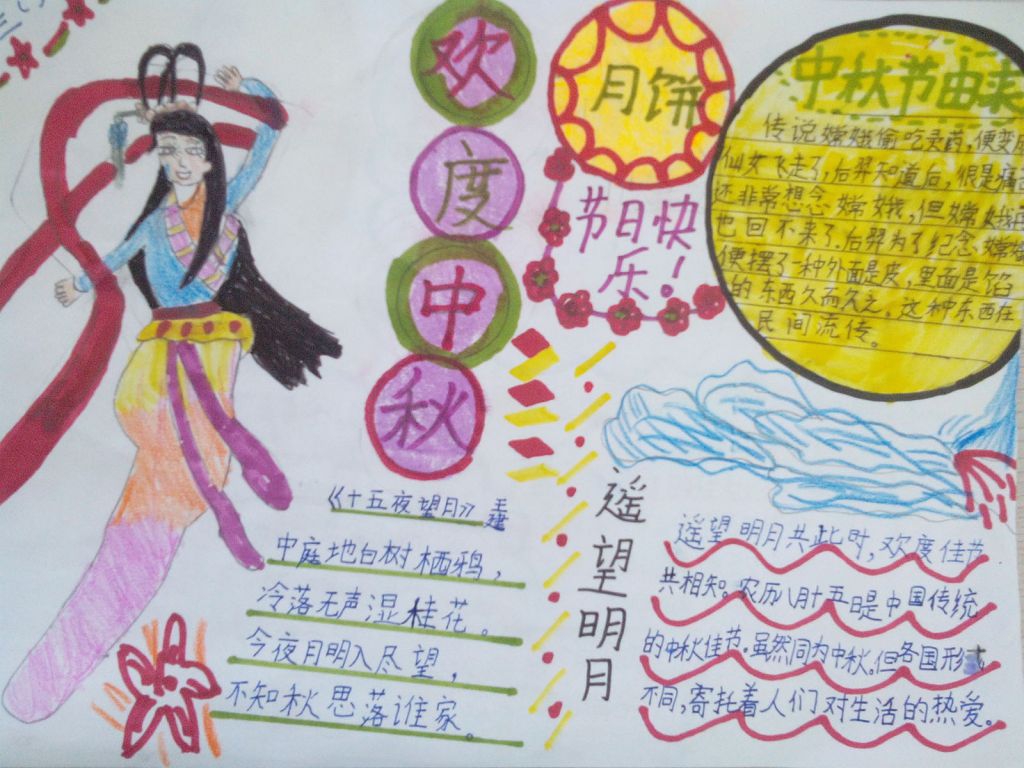 欢度中秋
月饼
节日快
乐！
中秋节由来
传说嫦娥偷吃灵药，便变成
仙女飞走了，后羿知道后，很是痛苦
还非常想念嫦娥，但嫦娥再
也回不来了。后羿为了纪念嫦娥
便摆了一种外面是皮，里面是馅
的东西久而久之。这种东西在
民间流传。
《十五夜望月》王建
中庭地白树栖鸦，
冷落无声湿桂花。
今夜月明入尽望，
不知秋思落谁家。
遥望明月
遥望明月共此时，欢度佳节
共相知。农历八月十五日是中国传统
的中秋佳节。虽然同为中秋，但各国形式
不同，寄托着人们对生活的热爱。